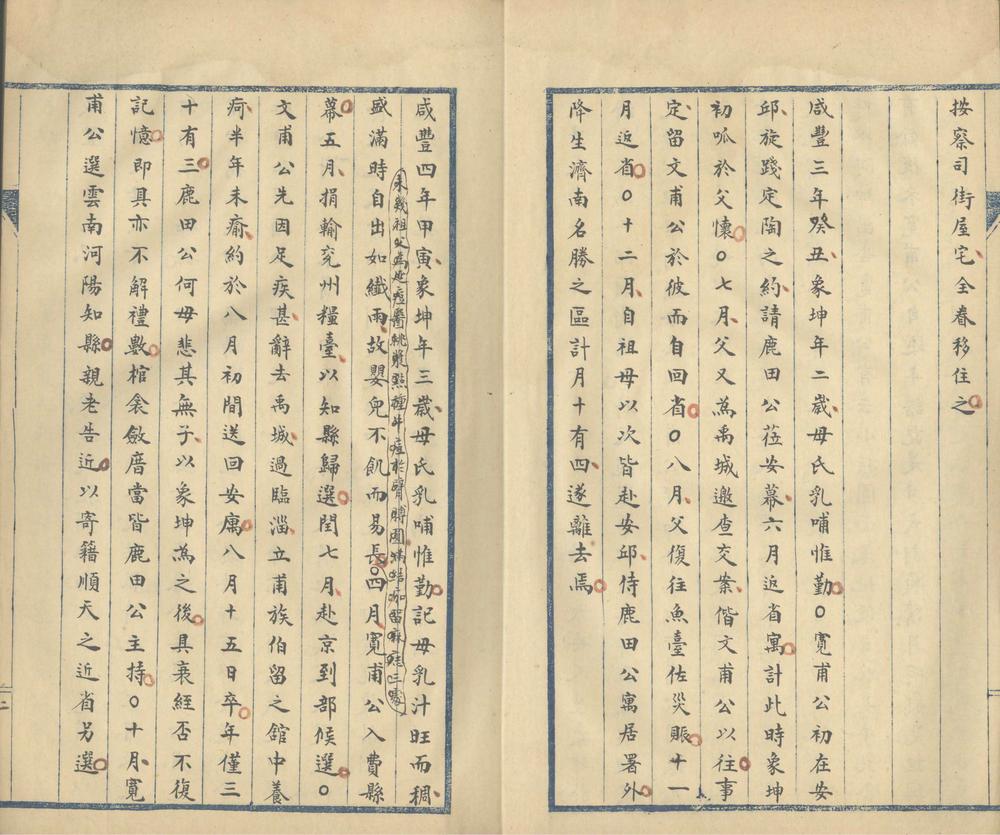 按察司街屋宅全眷移住之
咸豐三年癸丑象坤年二歲母氏乳哺惟勤○寬甫公初在安
邱旋踐定陶之約請鹿田公莅安幕六月返省寓計此時象坤
初呱於父懷○七月父又為禹城邀查交案偕文甫公以往事
定留文甫公於彼而自回省○八月父復往魚臺佐災賑十一
月返省○十二月自祖母以次皆赴安邱侍鹿田公寓居署外
降生濟南名勝之區計月十有四遂離去焉
咸豐四年甲寅象坤年三歲母氏乳哺惟勤記母乳汁旺而稠
盛滿時自出如纖雨故嬰兒不飢而易長○四月寬甫公入費縣
幕五月捐輸兗州糧臺以知縣歸選閏七月赴京到部候選○
文甫公先因足疾甚辭去禹城過臨淄立甫族伯留之館中養
疴半年未瘉約於八月初間送回安廨八月十五日卒年僅三
十有三鹿田公何母悲其無子以象坤為之後具衰絰否不復
記憶即具亦不解禮數棺衾斂厝當皆鹿田公主持○十月寬
甫公選雲南河陽知縣親老告近以寄籍順天之近省另選